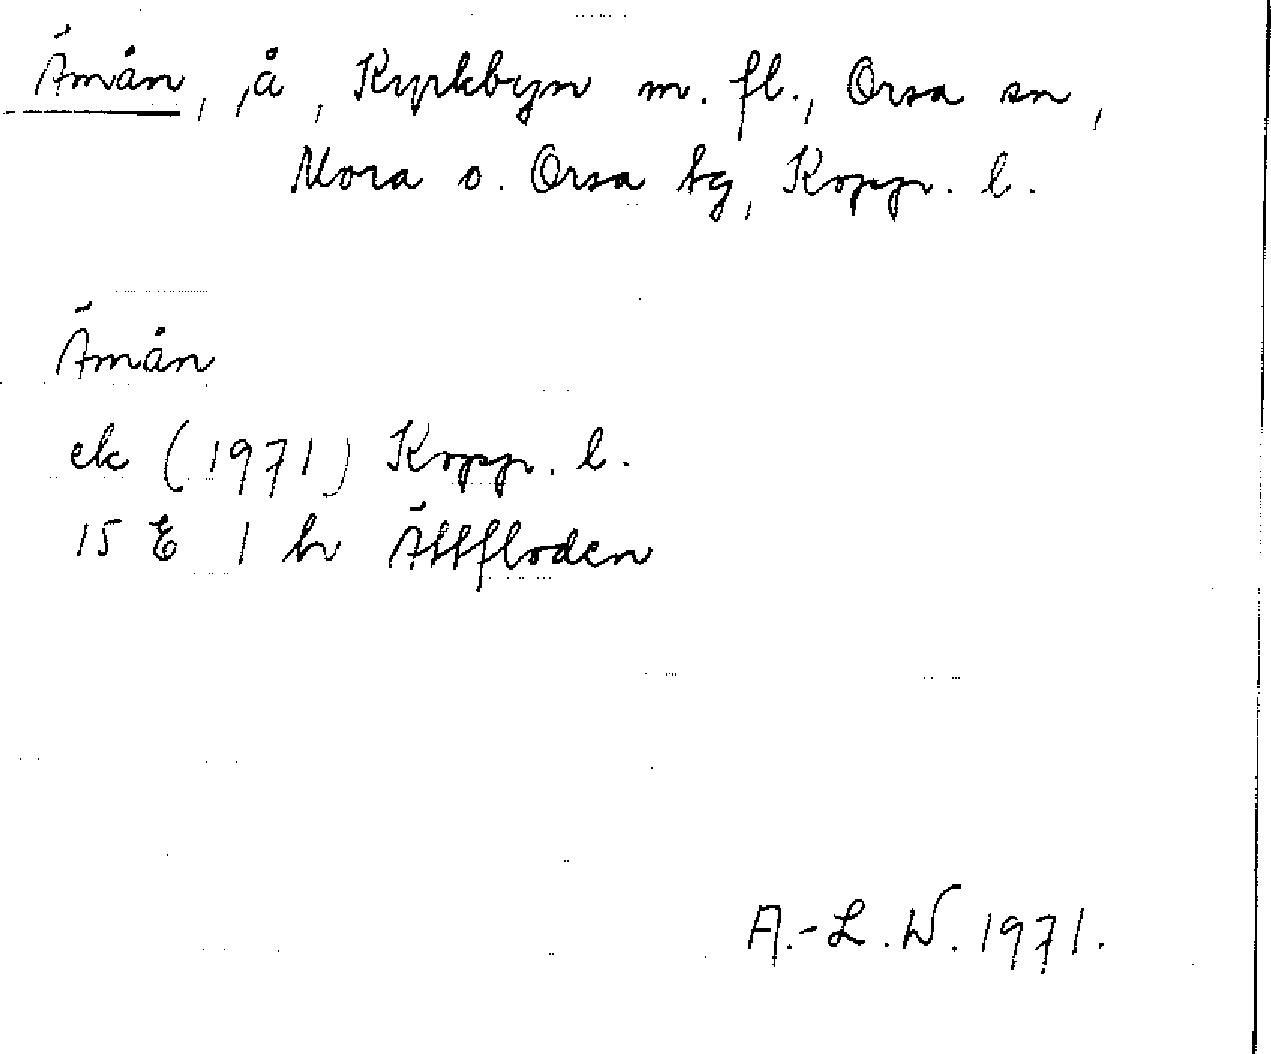 Ämån, å, Kyrkbyn m. fl., Orsa sn,
Mora o. Orsa tg, Kopp. l.
Ämån
ek (1971) Kopp. l.
15 E 1 h Ättfloden
A.-L. W. 1971.